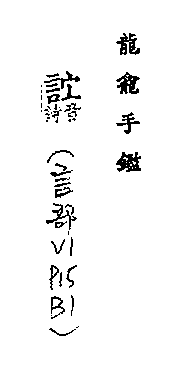 龍龕手鑑
音
詩
(言部V1
P15
B1)